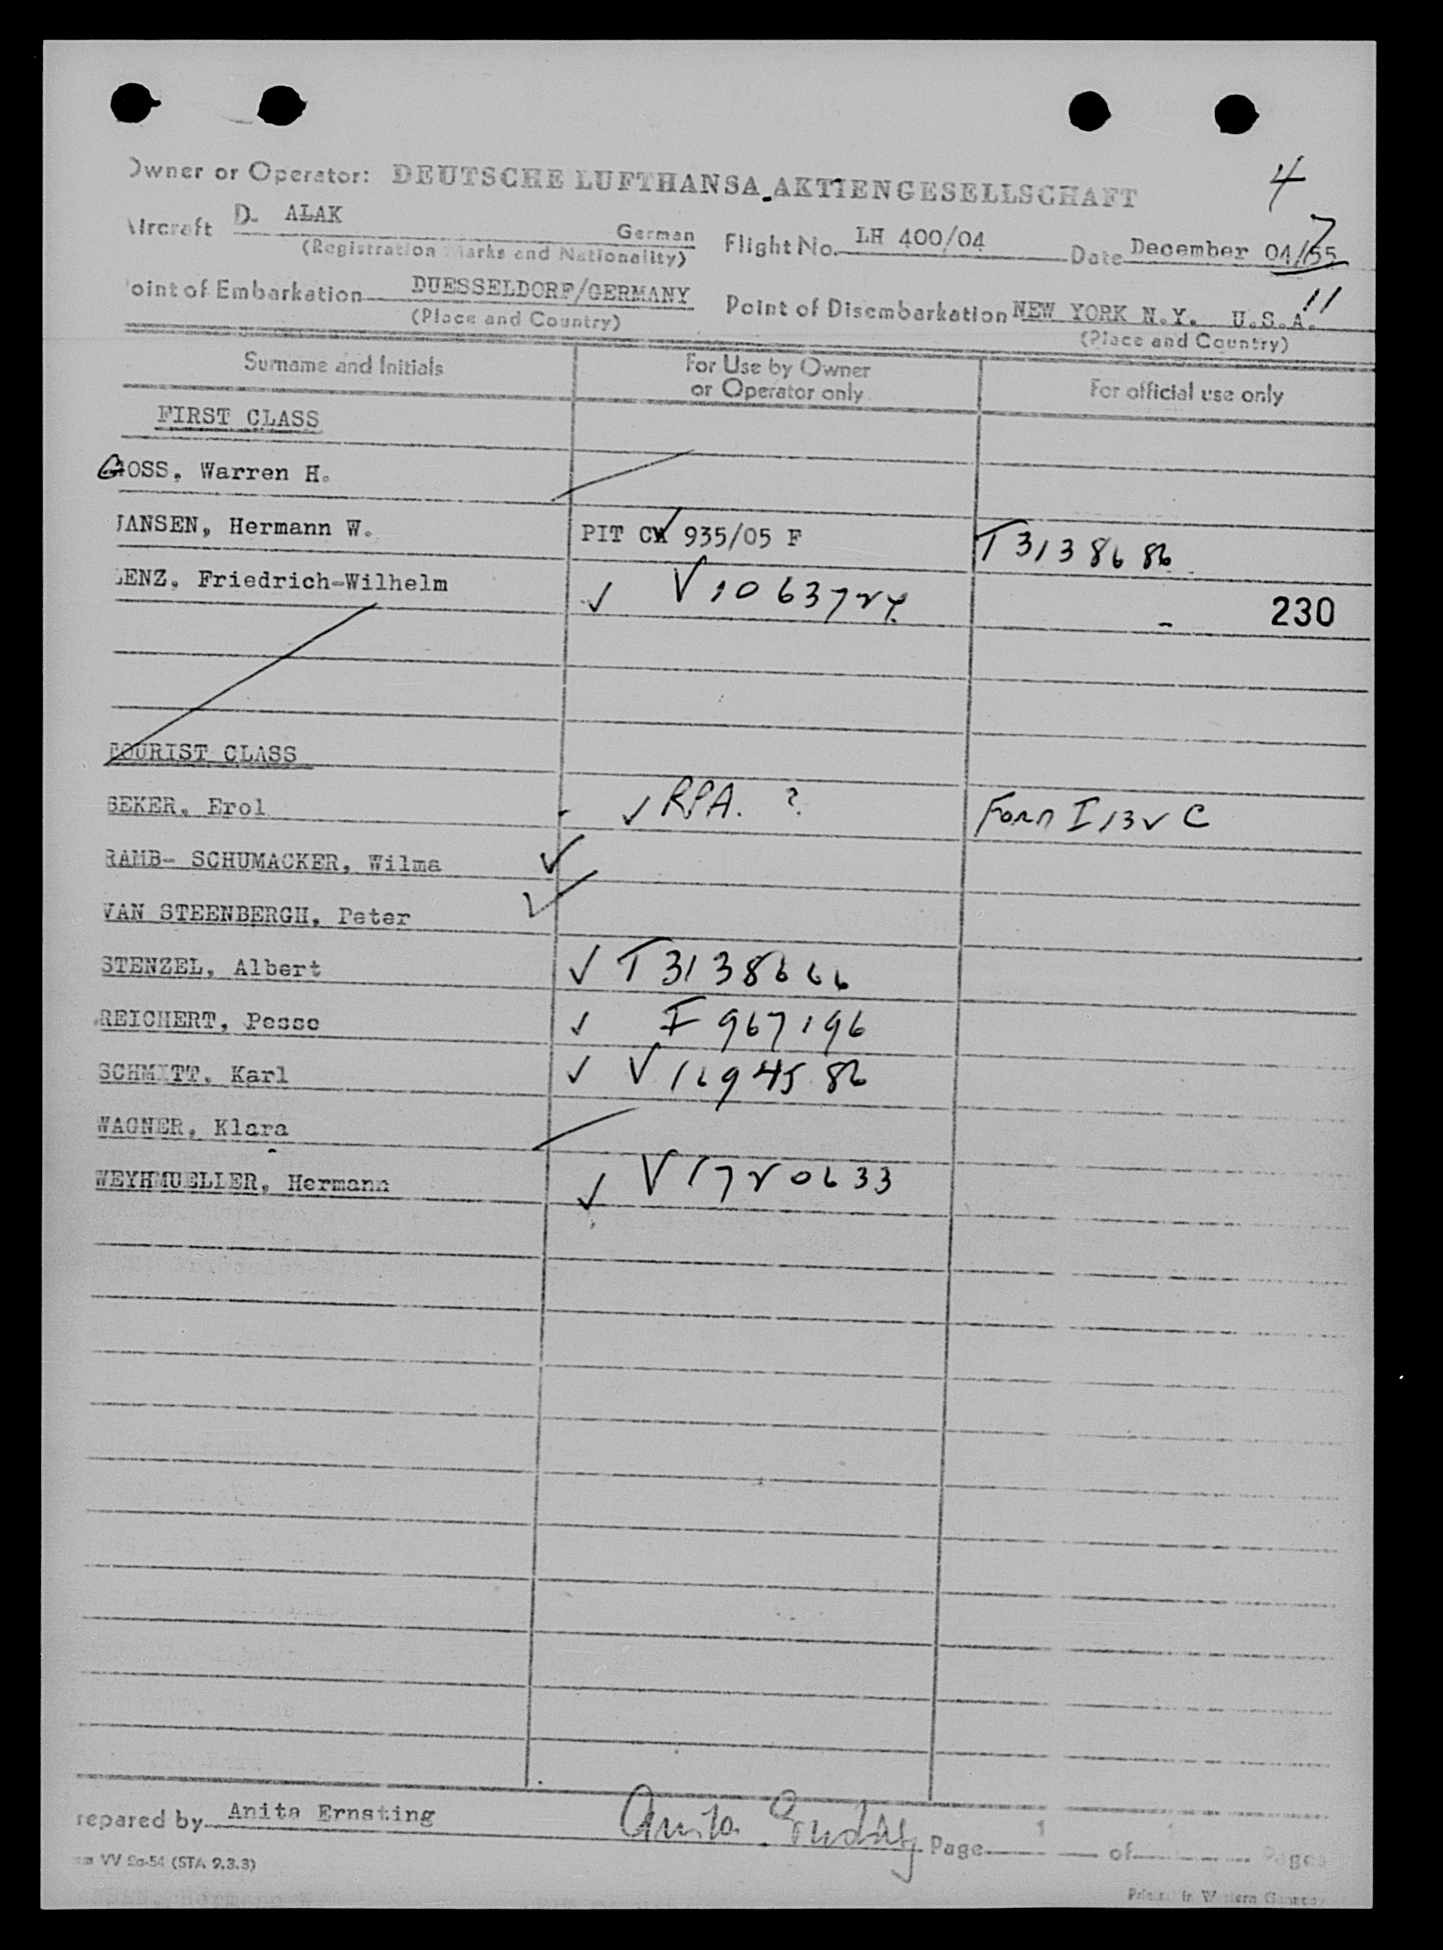 Owner or Operator: DEUTSCHE LUFTHANSA AKTIENGESELLSCHAFT
4
Aircraft D. ALAK German Flight No. LH 400/04 Date December 04/55
7
(Registration Marks and Nationality)
11
Point of Embarkation DUESSELDORF/GERMANY Point of Disembarkation NEW YORK N.Y. U.S.A.
(Place and Country) (Place and Country)
Surname and Initials For Use by Owner or Operator only For official use only
FIRST CLASS
GOSS, Warren H.
JANSEN, Hermann W. PIT CA 935/05 F T 3138686
LENZ, Friedrich-Wilhelm ✓ V
230
TOURIST CLASS
SEKER, Erol ✓ RPA. ? Form I 132 C
RAMB- SCHUMACKER, Wilma ✓
VAN STEENBERGH, Peter ✓
STENZEL, Albert ✓ T 3138666
REICHERT, Pesse ✓ I 967196
SCHMITT, Karl ✓ V 1694586
WAGNER, Klara
WEYHMUELLER, Hermann ✓ V 1720633
Prepared by Anita Ernsting Anita Ernsting Page 1 of Pages
VV 2a-54 (STA 9.3.3)
Printed in Western Germany